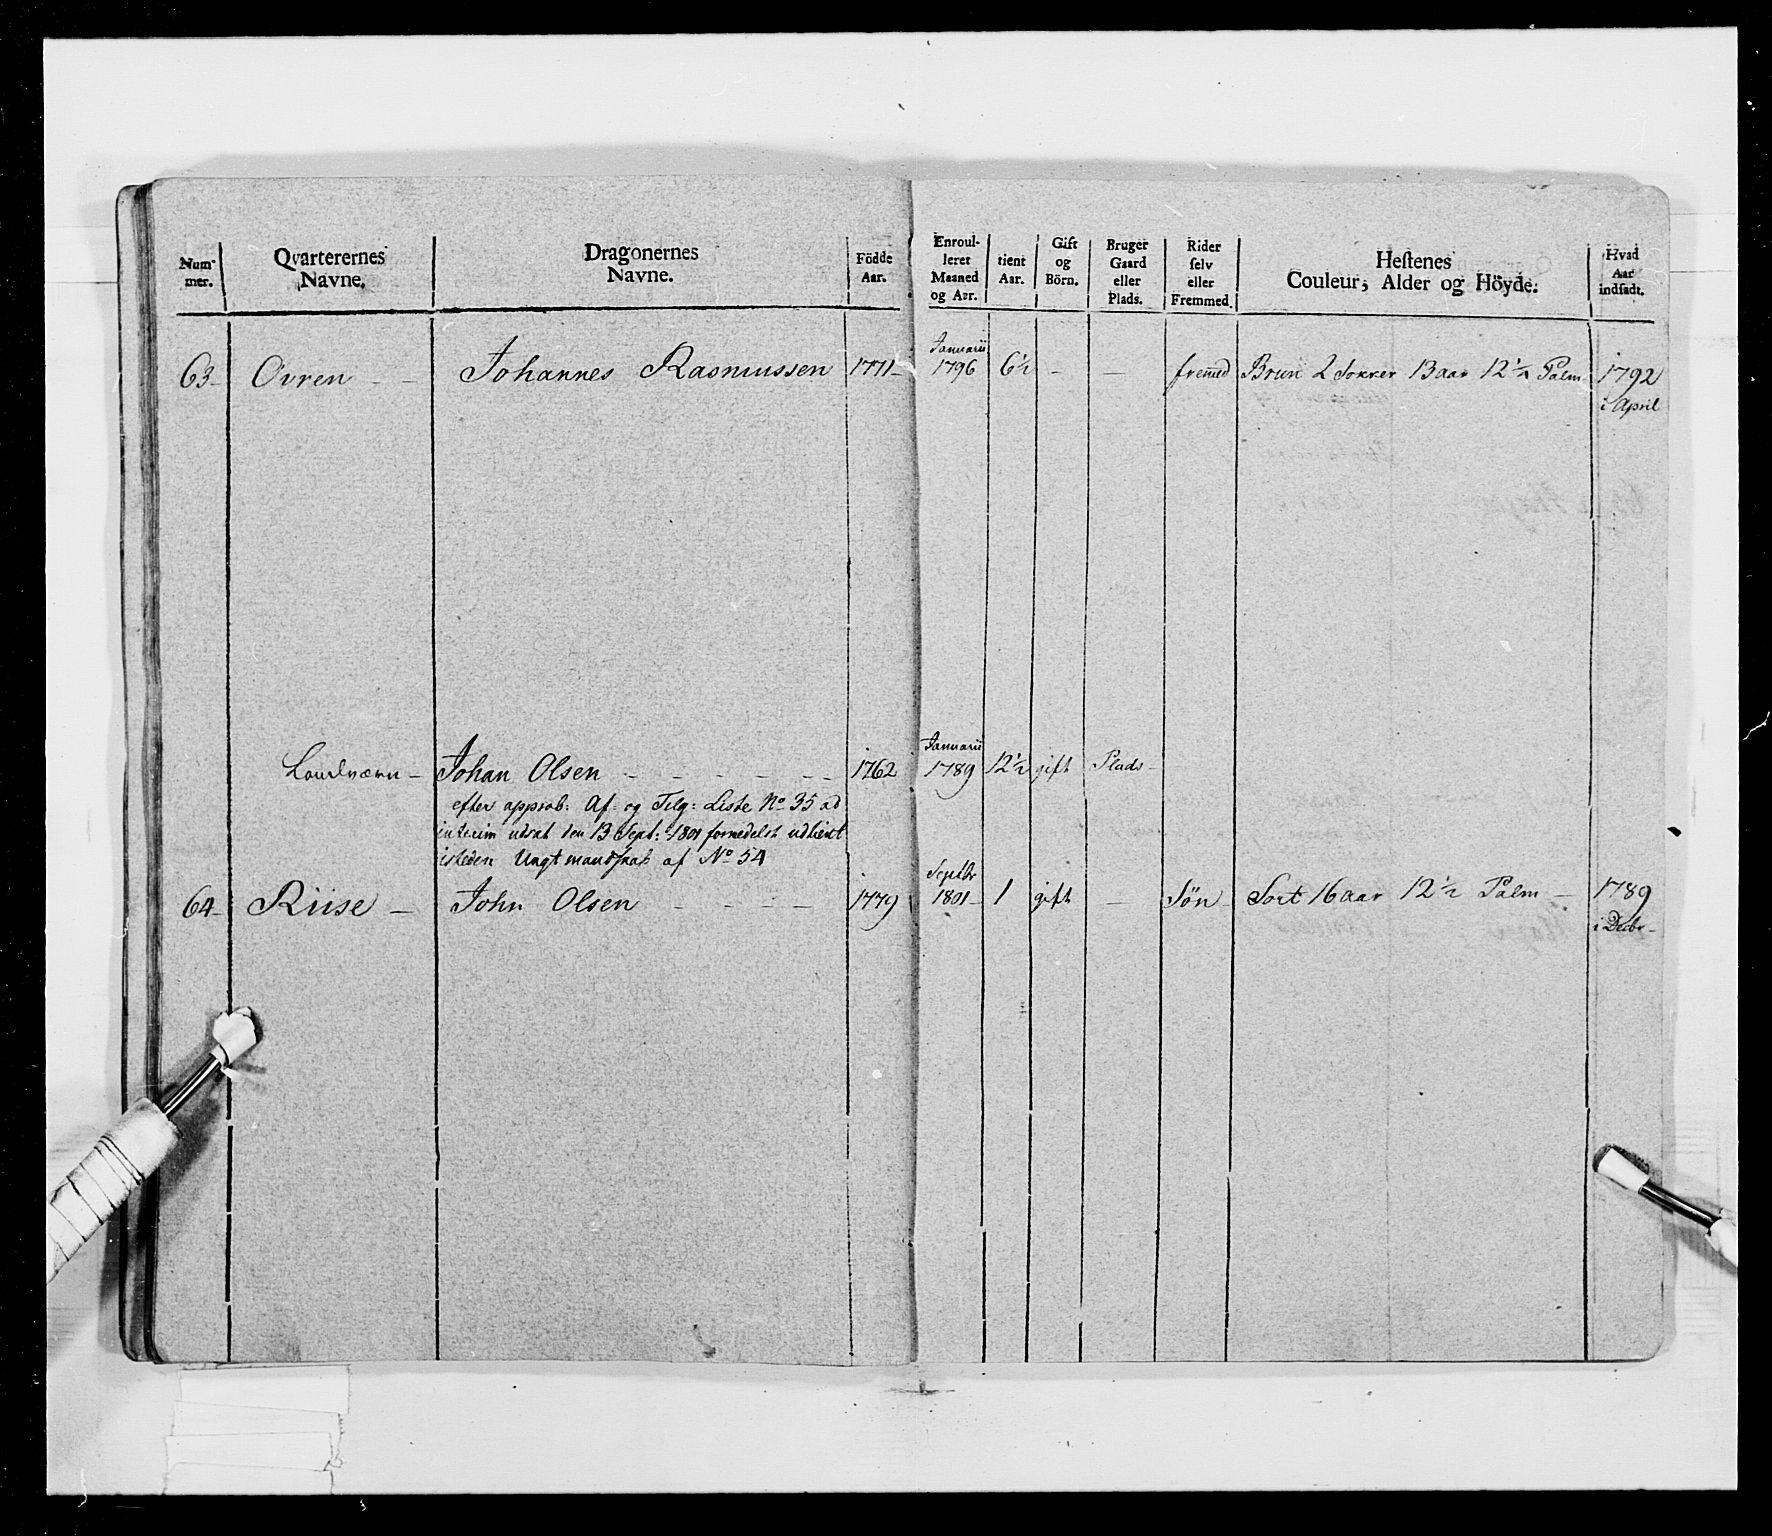 Num- mer. Qvarterernes Navne. Dragonernes Navne. Födde Aar. Enroul- leret Maaned og Aar. tient Aar. Gift og Börn. Bruger Gaard eller Plads. Rider selv eller Fremmed. Hestenes Couleur, Alder og Höyde. Hvad Aar indsadt.
Januarii
63 Ovren - - Johannes Rasmussen 1771 1796 6½ - - fremed Brun 2 Sokker 13 aar 12½ Palm 1792
i April
Januarii
Landværn - Johan Olsen - - - - - - 1762 1789 12½ gift Plads -
efter approb: Af- og Tilg: Liste No 35 ad
interim udsat den 13 Sept: 1801 formedelst udtient
isteden Ungt mandskab af No 54
Septbr
64 Riise - John Olsen - - - - 1779 1801 1 gift - Søn Sort 16 aar 12½ Palm - 1789
i Decbr -